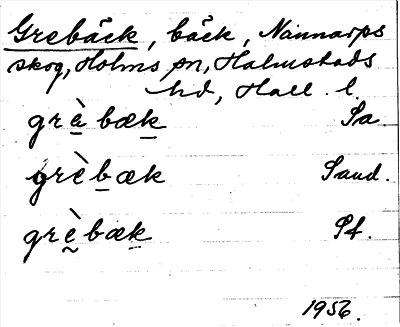 Grebäck, bäck, Nannarps
skog, Holms sn, Halmstads
hd, Hall. l.
grὲ̱ bæḵ Sa.
grὲb̲æk Sand.
grὲ̰bæk̲ Sf.
1956.